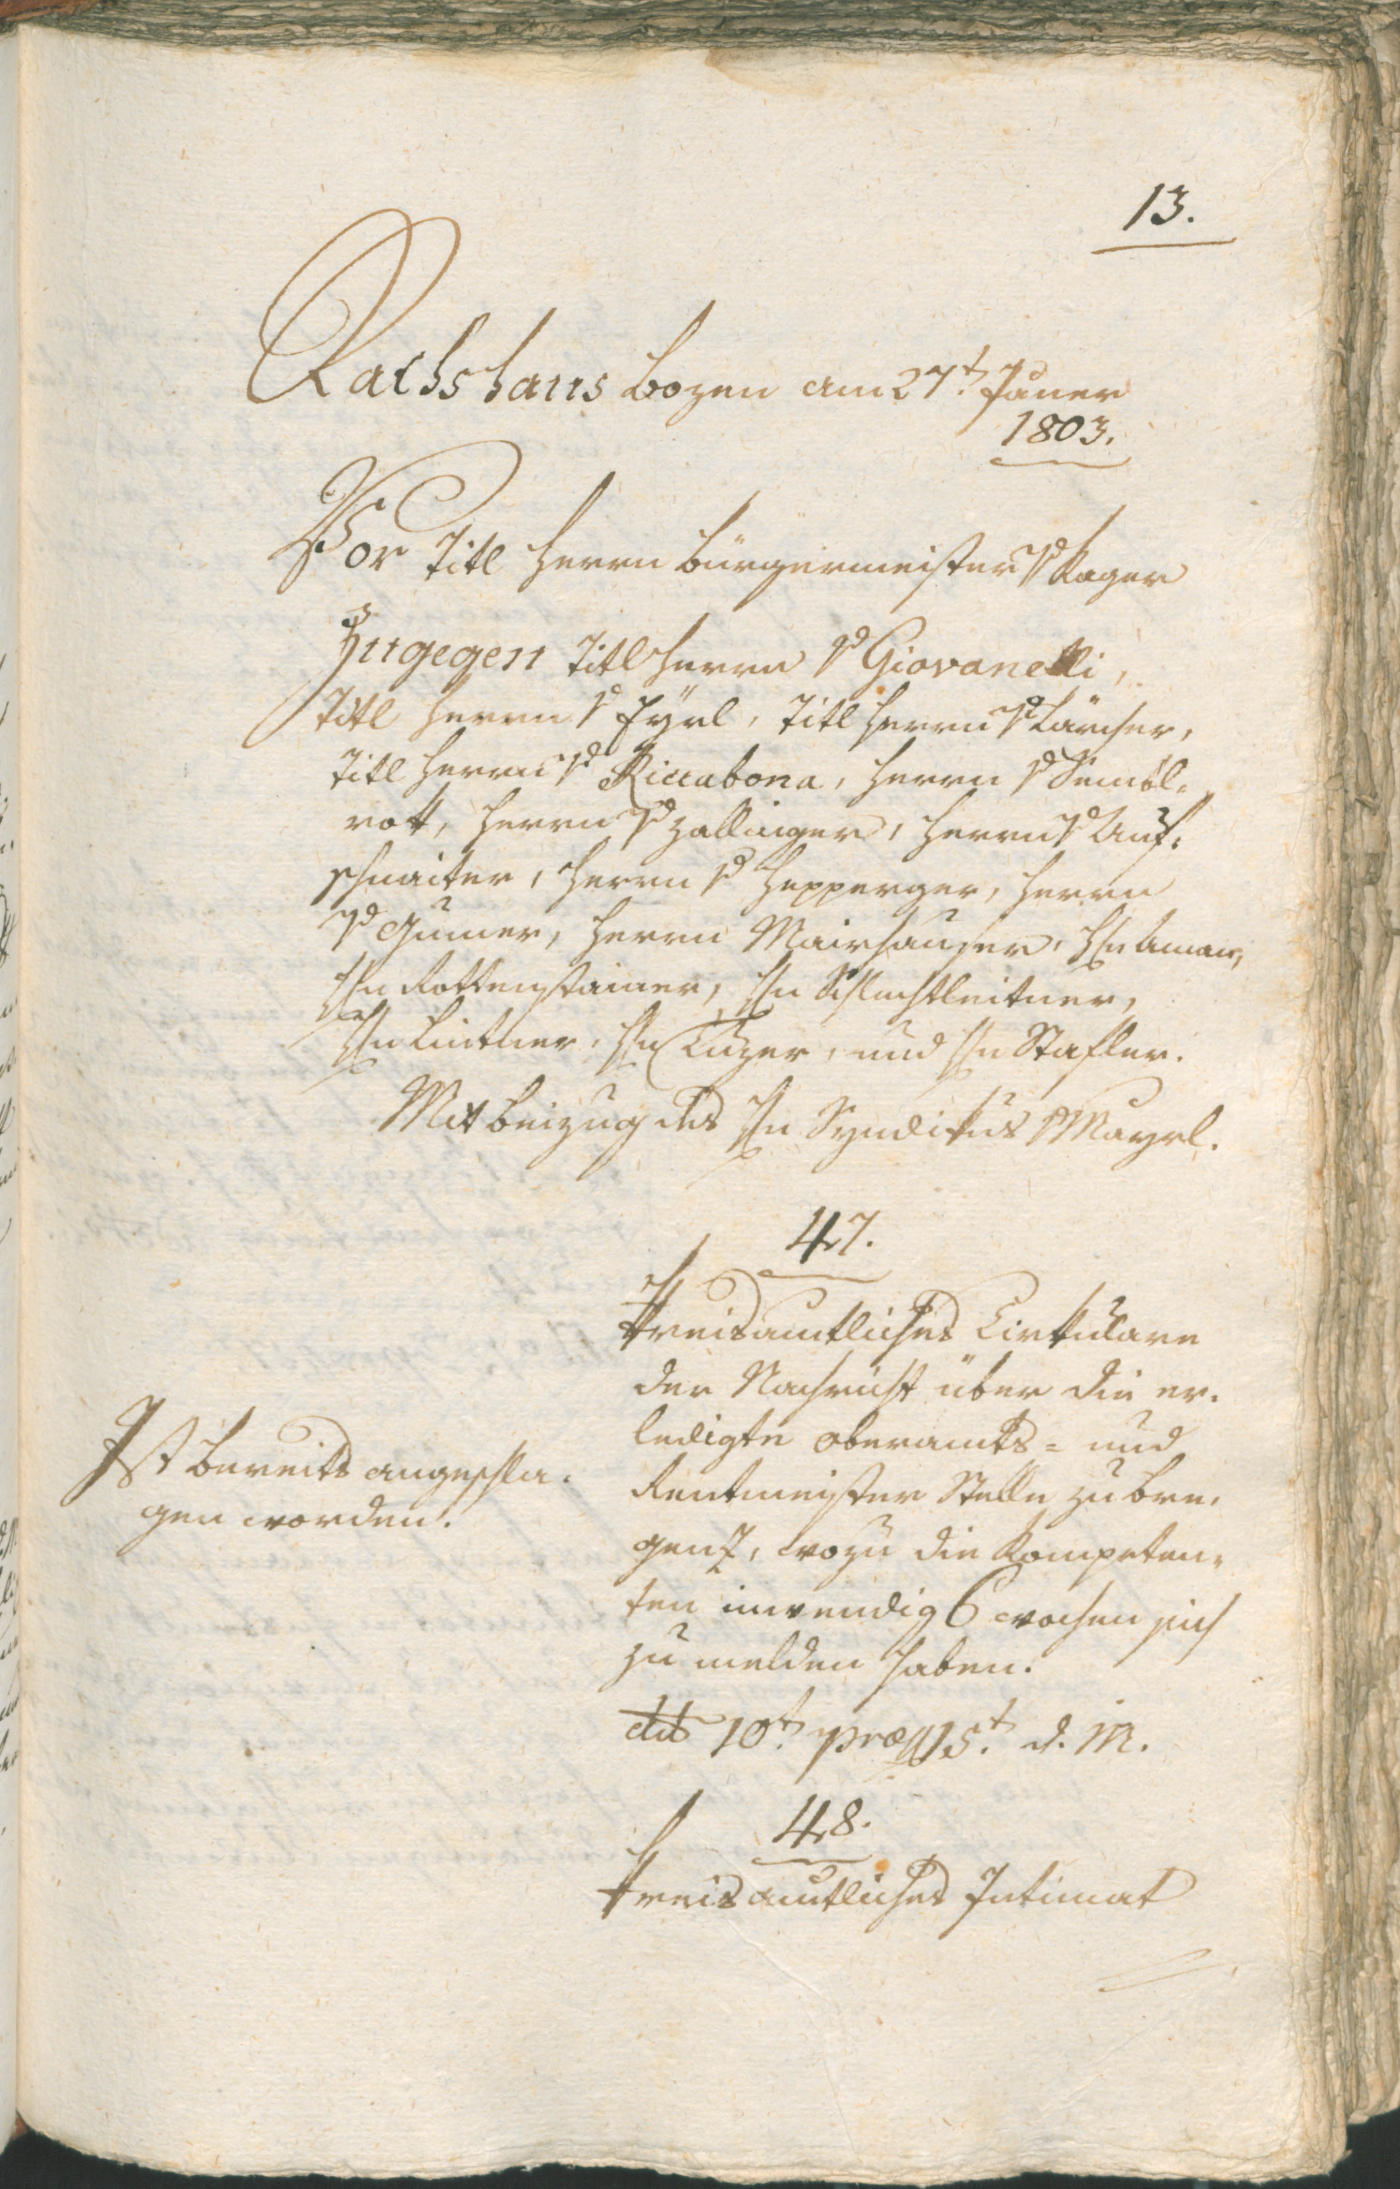 13.
Rathshaus Bozen am 27t. Jäner
1803.
Vor Titl Herrn Bürgermeister v Kager
Zugegen Titl Herrn v Giovanelli,
Titl Herrn v Eyrl, Titl Herrn v Lärcher,
Titl Herrn v Riccabona, Herrn v Sembl-
rott, Herrn v Zallinger, Herrn v Auf-
schnaiter, Herrn v Hepperger, Herrn
v Gumer, Herrn Mairhauser, Hn Aman,
Hn Rottensteiner, Hn Schluchtleitner,
Hn Lintner, Hn Luzer, und Hn Stafler.
Mit beizug des Hn Syndikus Mayrl.
47.
Kreisamtliches Cirkulare
der Nachricht über die er-
ledigte Oberamts- und
Rentmeister Stelle zu Bre-
genz, wozu die Kompeten-
ten inwendig 6 wochen sich
zu melden haben.
dtto 10t. præs 15t. d. M.
Ist bereits angeschla-
gen worden.
48.
Kreisamtliches Intimat